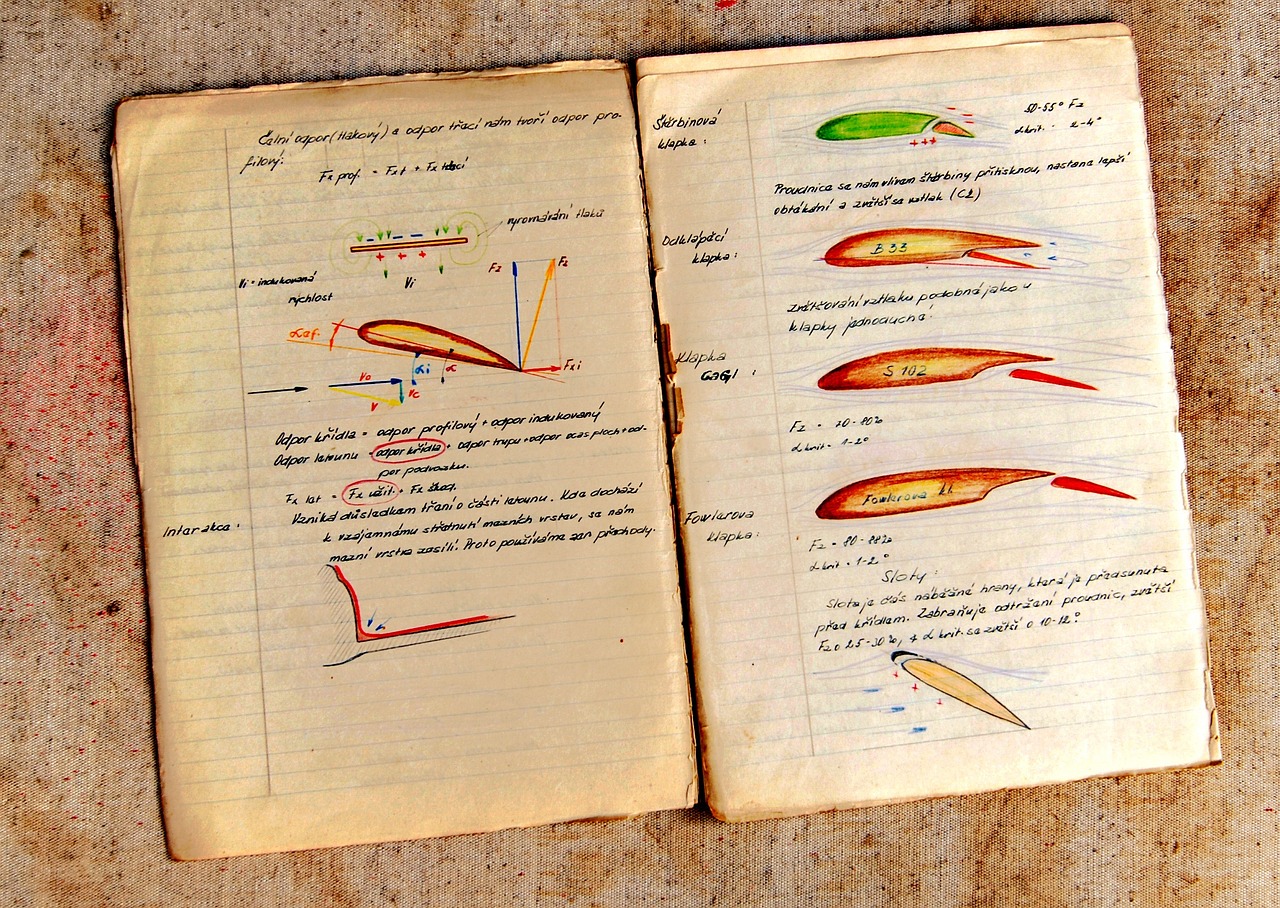 Čelní odpor (tlakový) a odpor třecí nám tvoří odpor pro-
filový:
Fx prof. = Fx t + Fx třecí
vyrovnávání tlaků
Vi = indukovaná
rychlost
Vi
Fz
Fz
αef.
Fxi
αi
α
Vo
Vc
V
Odpor křídla = odpor profilový + odpor indukovaný
Odpor letounu = odpor křídla + odpor trupu + odpor ocas ploch + od-
por podvozku.
Fx let = Fx užit. + Fx škod.
Interakce:
Vzniká důsledkem tření o části letounu. Kde dochází
k vzájemnému střetnutí mezních vrstev, se nám
mezní vrstva zesílí. Proto používáme zan přechody.
Štěrbinová
klapka:
50-55° Fz
αkrit. - 2-4°
Proudnice se nám vlivem štěrbiny přitisknou, nastane lepší
obtékání a zvětší se vztlak (Cz)
Odklápěcí
klapka:
B 33
zvětšování vztlaku podobné jako u
klapky jednoduché.
Klapka
GaGl:
S 102
Fz - 70-80%
αkrit - 1-2°
Fowlerova
klapka:
Fowlerova kl.
Fz - 80-88%
αkrit - 1-2°
Sloty:
Slot je část náběžné hrany, která je předsunuta
před křídlem. Zabraňuje odtržení proudnic, zvětší
Fz o 25-30%, αkrit. se zvětší o 10-12°